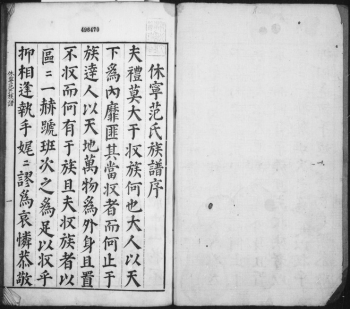 400470
休寧范氏族譜序
夫禮莫大于収族何也大人以天
下為內靡匪其當収者而何止于
族達人以天地萬物為外身且置
不収而何有于族且夫収族者以
區〻一赫蹏班次之為足以収乎
抑相逢執手娓〻謬為哀憐恭敬
休寧范氏族譜